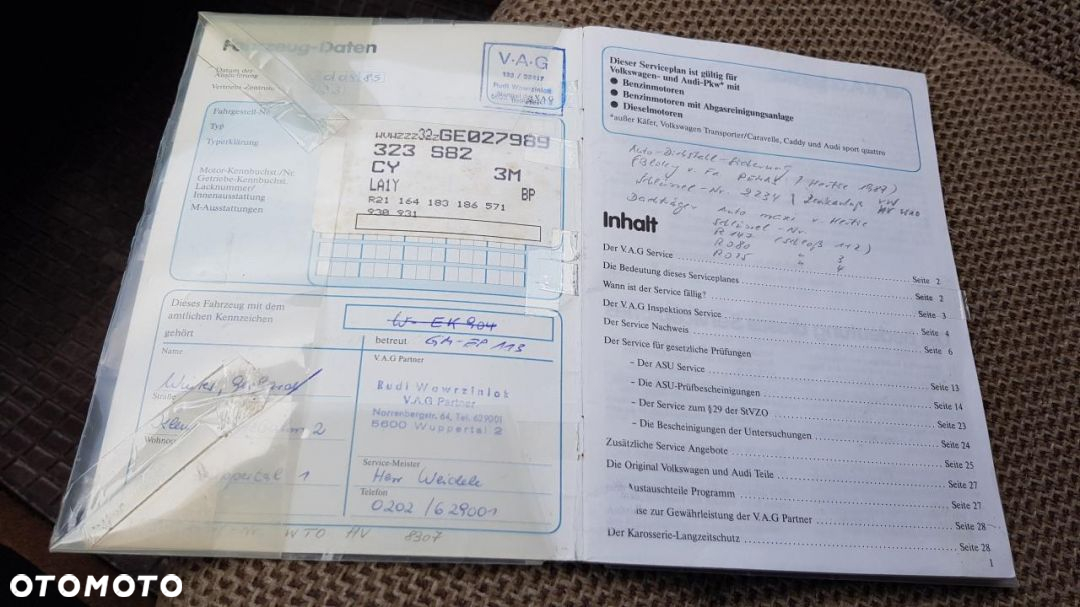 Fahrzeug-Daten
Datum der
Auslieferung
Vertriebs-Zentrum
V·A·G
Rudi Wawrzinlok
Fahrgestell-Nr.
Typ
Typerklärung
Motor-Kennbuchst./Nr.
Getriebe-Kennbuchst.
Lacknummer/
Innenausstattung
M-Ausstattungen
WVWZZZ32ZGE027989
323 S82
CY 3M
LA1Y BP
R21 164 183 186 571
930 931
Dieses Fahrzeug mit dem
amtlichen Kennzeichen
W-EK 904
gehört
betreut GM-EP 113
Name
V.A.G Partner
Rudi Wawrzinlok
V.A.G Partner
Norrenbergstr. 64, Tel. 629001
5600 Wuppertal 2
Straße
2
Wohnort
1
Service-Meister
Herr Weidele
Telefon
0202 /629001
WTO HV 8307
Dieser Serviceplan ist gültig für
Volkswagen- und Audi-Pkw* mit
● Benzinmotoren
● Benzinmotoren mit Abgasreinigungsanlage
● Dieselmotoren
*außer Käfer, Volkswagen Transporter/Caravelle, Caddy und Audi sport quattro
Auto-Diebstahl-Sicherung
Schlüssel-Nr. 2234
Dachträger Auto maxi v. Hertie
Schlüssel-Nr.
R 147 (Schloß 1+2)
R 080 " 3
R 075 " 4
Inhalt
Der V.A.G Service Seite 2
Die Bedeutung dieses Serviceplanes Seite 2
Wann ist der Service fällig? Seite 3
Der V.A.G Inspektions Service Seite 4
Der Service Nachweis Seite 6
Der Service für gesetzliche Prüfungen
– Der ASU Service Seite 13
– Die ASU-Prüfbescheinigungen Seite 14
– Der Service zum §29 der StVZO Seite 23
– Die Bescheinigungen der Untersuchungen Seite 24
Zusätzliche Service Angebote Seite 25
Die Original Volkswagen und Audi Teile Seite 27
Austauschteile Programm Seite 27
ise zur Gewährleistung der V.A.G Partner Seite 28
Der Karosserie-Langzeitschutz Seite 28
1
OTOMOTO